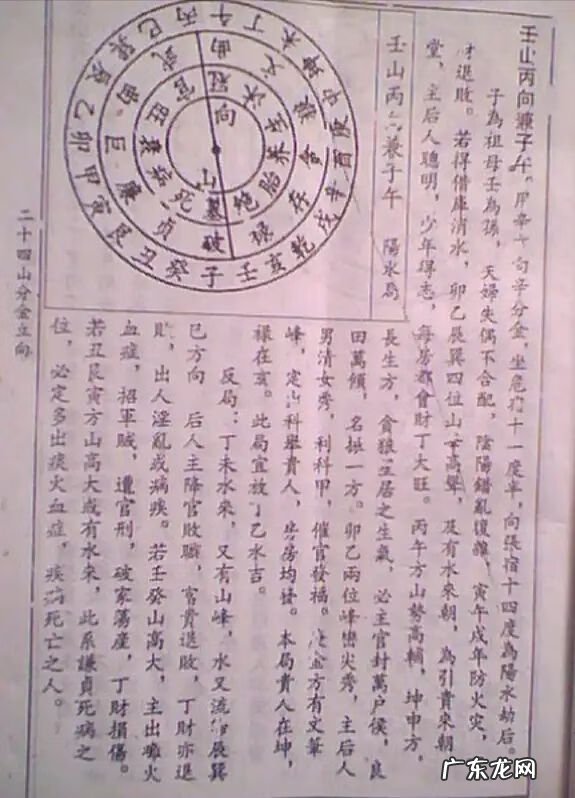 壬山丙向兼子午
甲辛
向辛分金，坐危初十一度半，向張宿十四度為陽水劫后。
子為祖母壬為孫，夫婦失偶不合配，陰陽錯亂復雜，寅午戌年防火灾，
財退敗。若得借庫消水，卯乙辰巽四位山
高聳，及有水來朝，為引貴來朝
堂，主后人聰明，少年得志，每房都會財丁大旺。丙午方山勢高輔，坤申方，
壬山丙
兼子午
陽水局
長生方，貪狼星居之生氣，必主官封萬户侯，良
田萬傾，名振一方。卯乙兩位峰巒尖秀，主后人
男清女秀，利科甲，催官發福。
金方有文筆
峰，定出科舉貴人，房房均發。本局貴人在坤，
禄在亥。此局宜放丁乙水吉。
反局：丁未水來，又有山峰，水又流
辰巽
巳方向
后人主降官敗職，富貴退敗，丁財亦退
敗，出人淫亂或病疾。若壬癸山高大，主出癱火
血症，招軍賊，遭官刑，破家蕩産，丁財損傷。
若丑艮寅方山高大或有水來，此系謙貞死病之
位，必定多出痰火血症，疾病死亡之人。
二十四山分金立向
丙午丁未坤申庚酉辛戌乾亥壬子癸丑艮寅甲卯乙辰巽巳
武曲
文
貪
存
禄
破
貞
廉
巨
曲
官冠沐生养胎绝墓死病衰旺
向
山
广东龙网